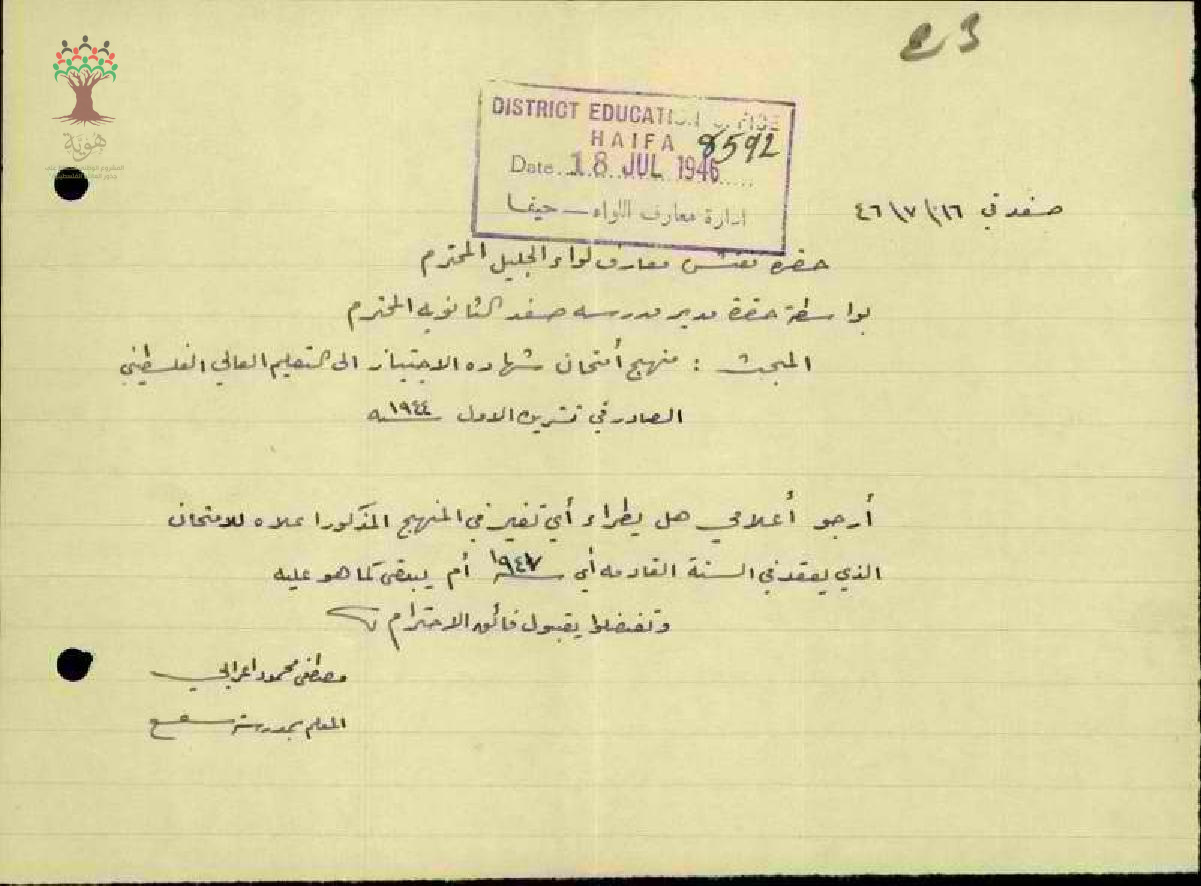 23
هوية
DISTRICT EDUCATION OFFICE
HAIFA 8592
Date 18 JUL 1946
ادارة معارف اللواء — حيفا
صفد في ١٦/٧/٤٦
حضرة مفتش معارف لواء الجليل المحترم
بواسطة حضرة مدير مدرسه صفد الثانويه المحترم
المبحث : منهج أمتحان شهاده الاجتياز الى التعليم العالي الفلسطيني
الصادر في تشرين الاول سنه ١٩٤٤
أرجو أعلامي هل يطراء أي تغير في المنهج المذكور اعلاه للامتحان
الذي يعقد في السنة القادمه أي سنه ١٩٤٧ أم يبقى كما هو عليه
وتفضلوا بقبول فائق الاحترام
مصطفى محمود اعرابي
المعلم بمدرسة سعسع